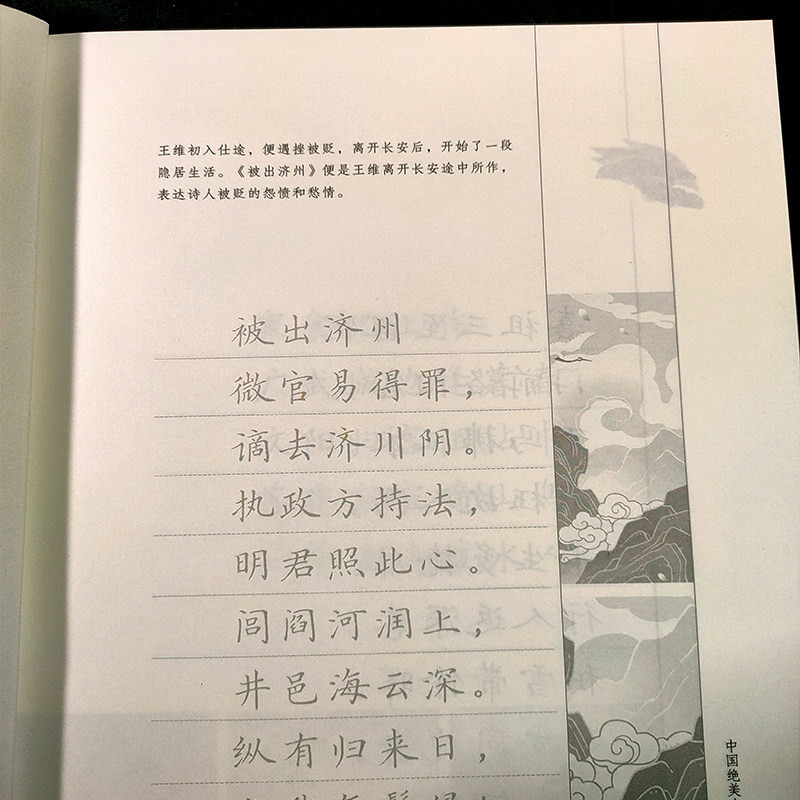 王维初入仕途，便遇挫被贬，离开长安后，开始了一段
隐居生活。《被出济州》便是王维离开长安途中所作，
表达诗人被贬的怨愤和愁情。
被出济州
微官易得罪，
谪去济川阴。
执政方持法，
明君照此心。
闾阎河润上，
井邑海云深。
纵有归来日，
中国绝美